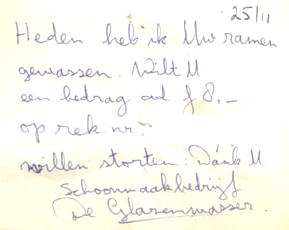 25/11
Heden heb ik Uw ramen
gewassen. Wilt U
een bedrag ad. f 8,-
op rek. nr.:
willen storten: Dank U
Schoonmaakbedrijf
De Glazenwasser.